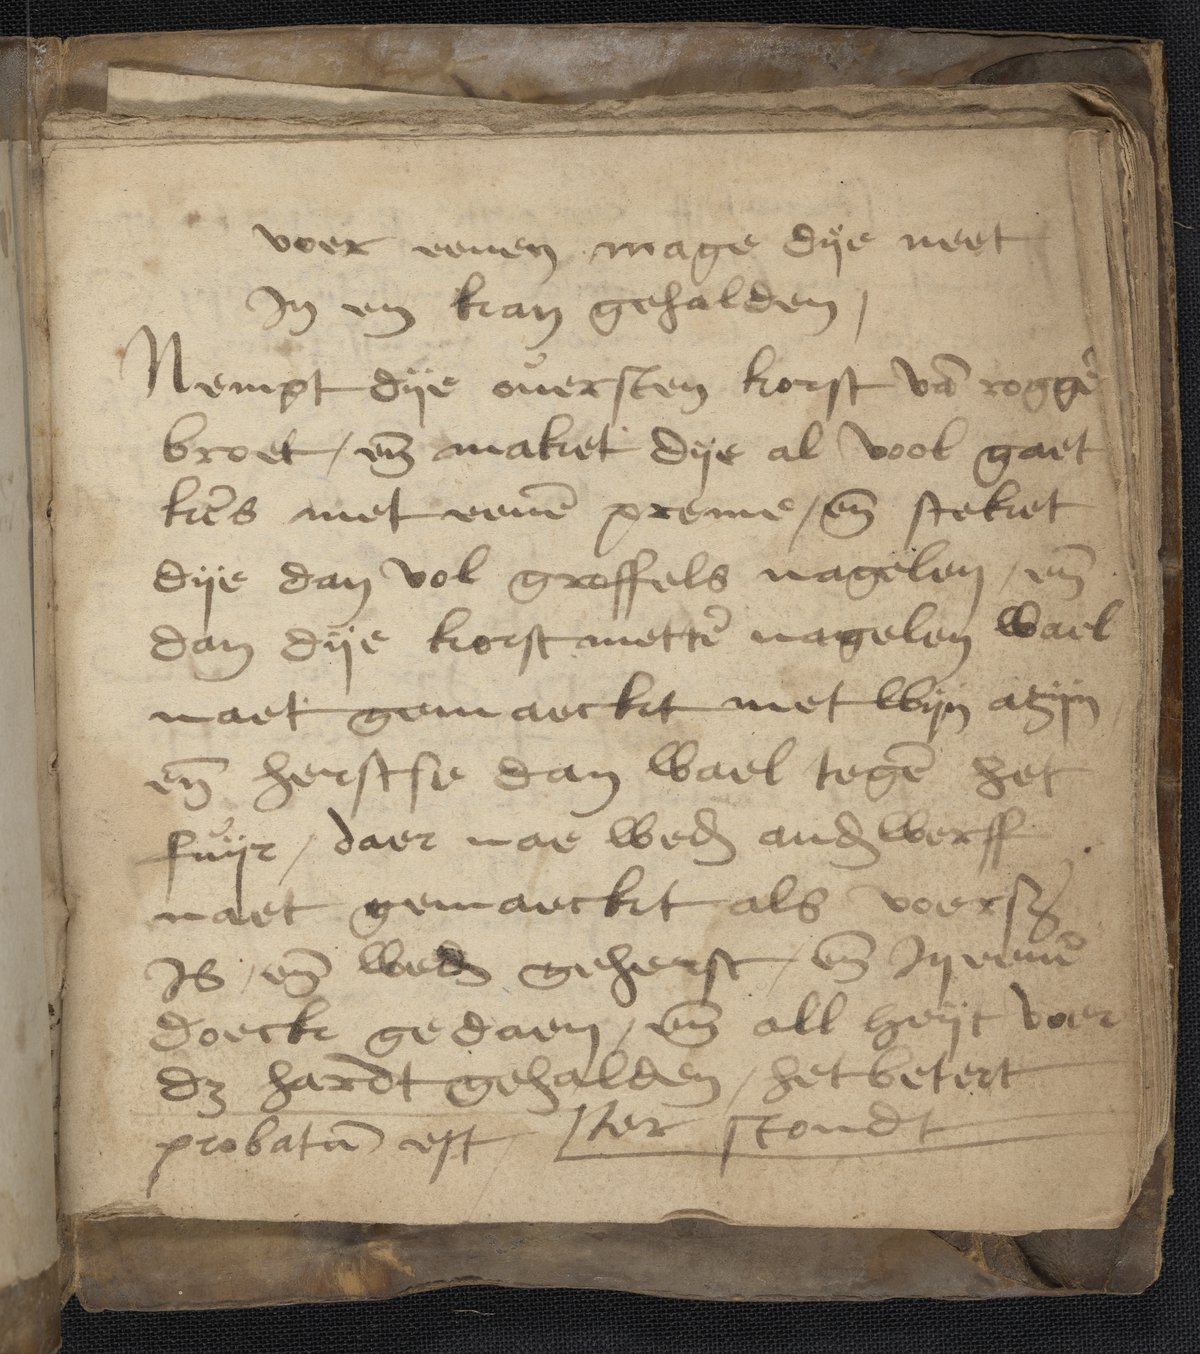 voer eenen mage dÿe neet
In en kan gehalden /
Nempt dÿe ouersten korst vā roggē
broet / en̄ maket dÿe al vool gaet
kēs met eenē preme / en̄ steket
dÿe dan vol groffels nagelen / en̄
dan dÿe korst mettē nagelen wael
naet gemaeckt met wijn azijn /
en̄ herstse dan wael tegē het
fuÿr / daer nae wed andwerff
naet gemaeckt als voersz
Is / en̄ wed geherst / en̄ In eenē
doeck gedaen / en̄ all heÿt voer
dz hardt gehalden / het betert
probatū est / ter stondt